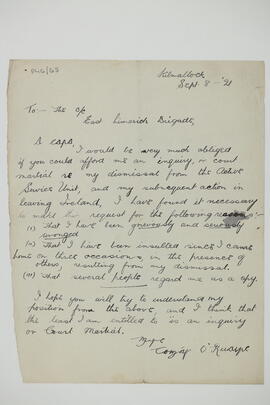 Kilmallock
Sept. 8 - '21
To:- The O/C
East Limerick Brigade,
A cara,
I would be very much obliged
if you could afford me an inquiry, or court
martial re my dismissal from the Active
Service Unit, and my subsequent action in
leaving Ireland, I have found it necessary
to make this request for the following reasons:-
(I) That I have been grievously and seriously
wronged
(II) That I have been insulted since I came
home on three occasions, in the presence of
others, resulting from my dismissal.
(III) That several people regard me as a spy.
I hope you will try to understand my
position from the above, and I think that
the least I am entitled to is an inquiry
or Court Martial.
Mise